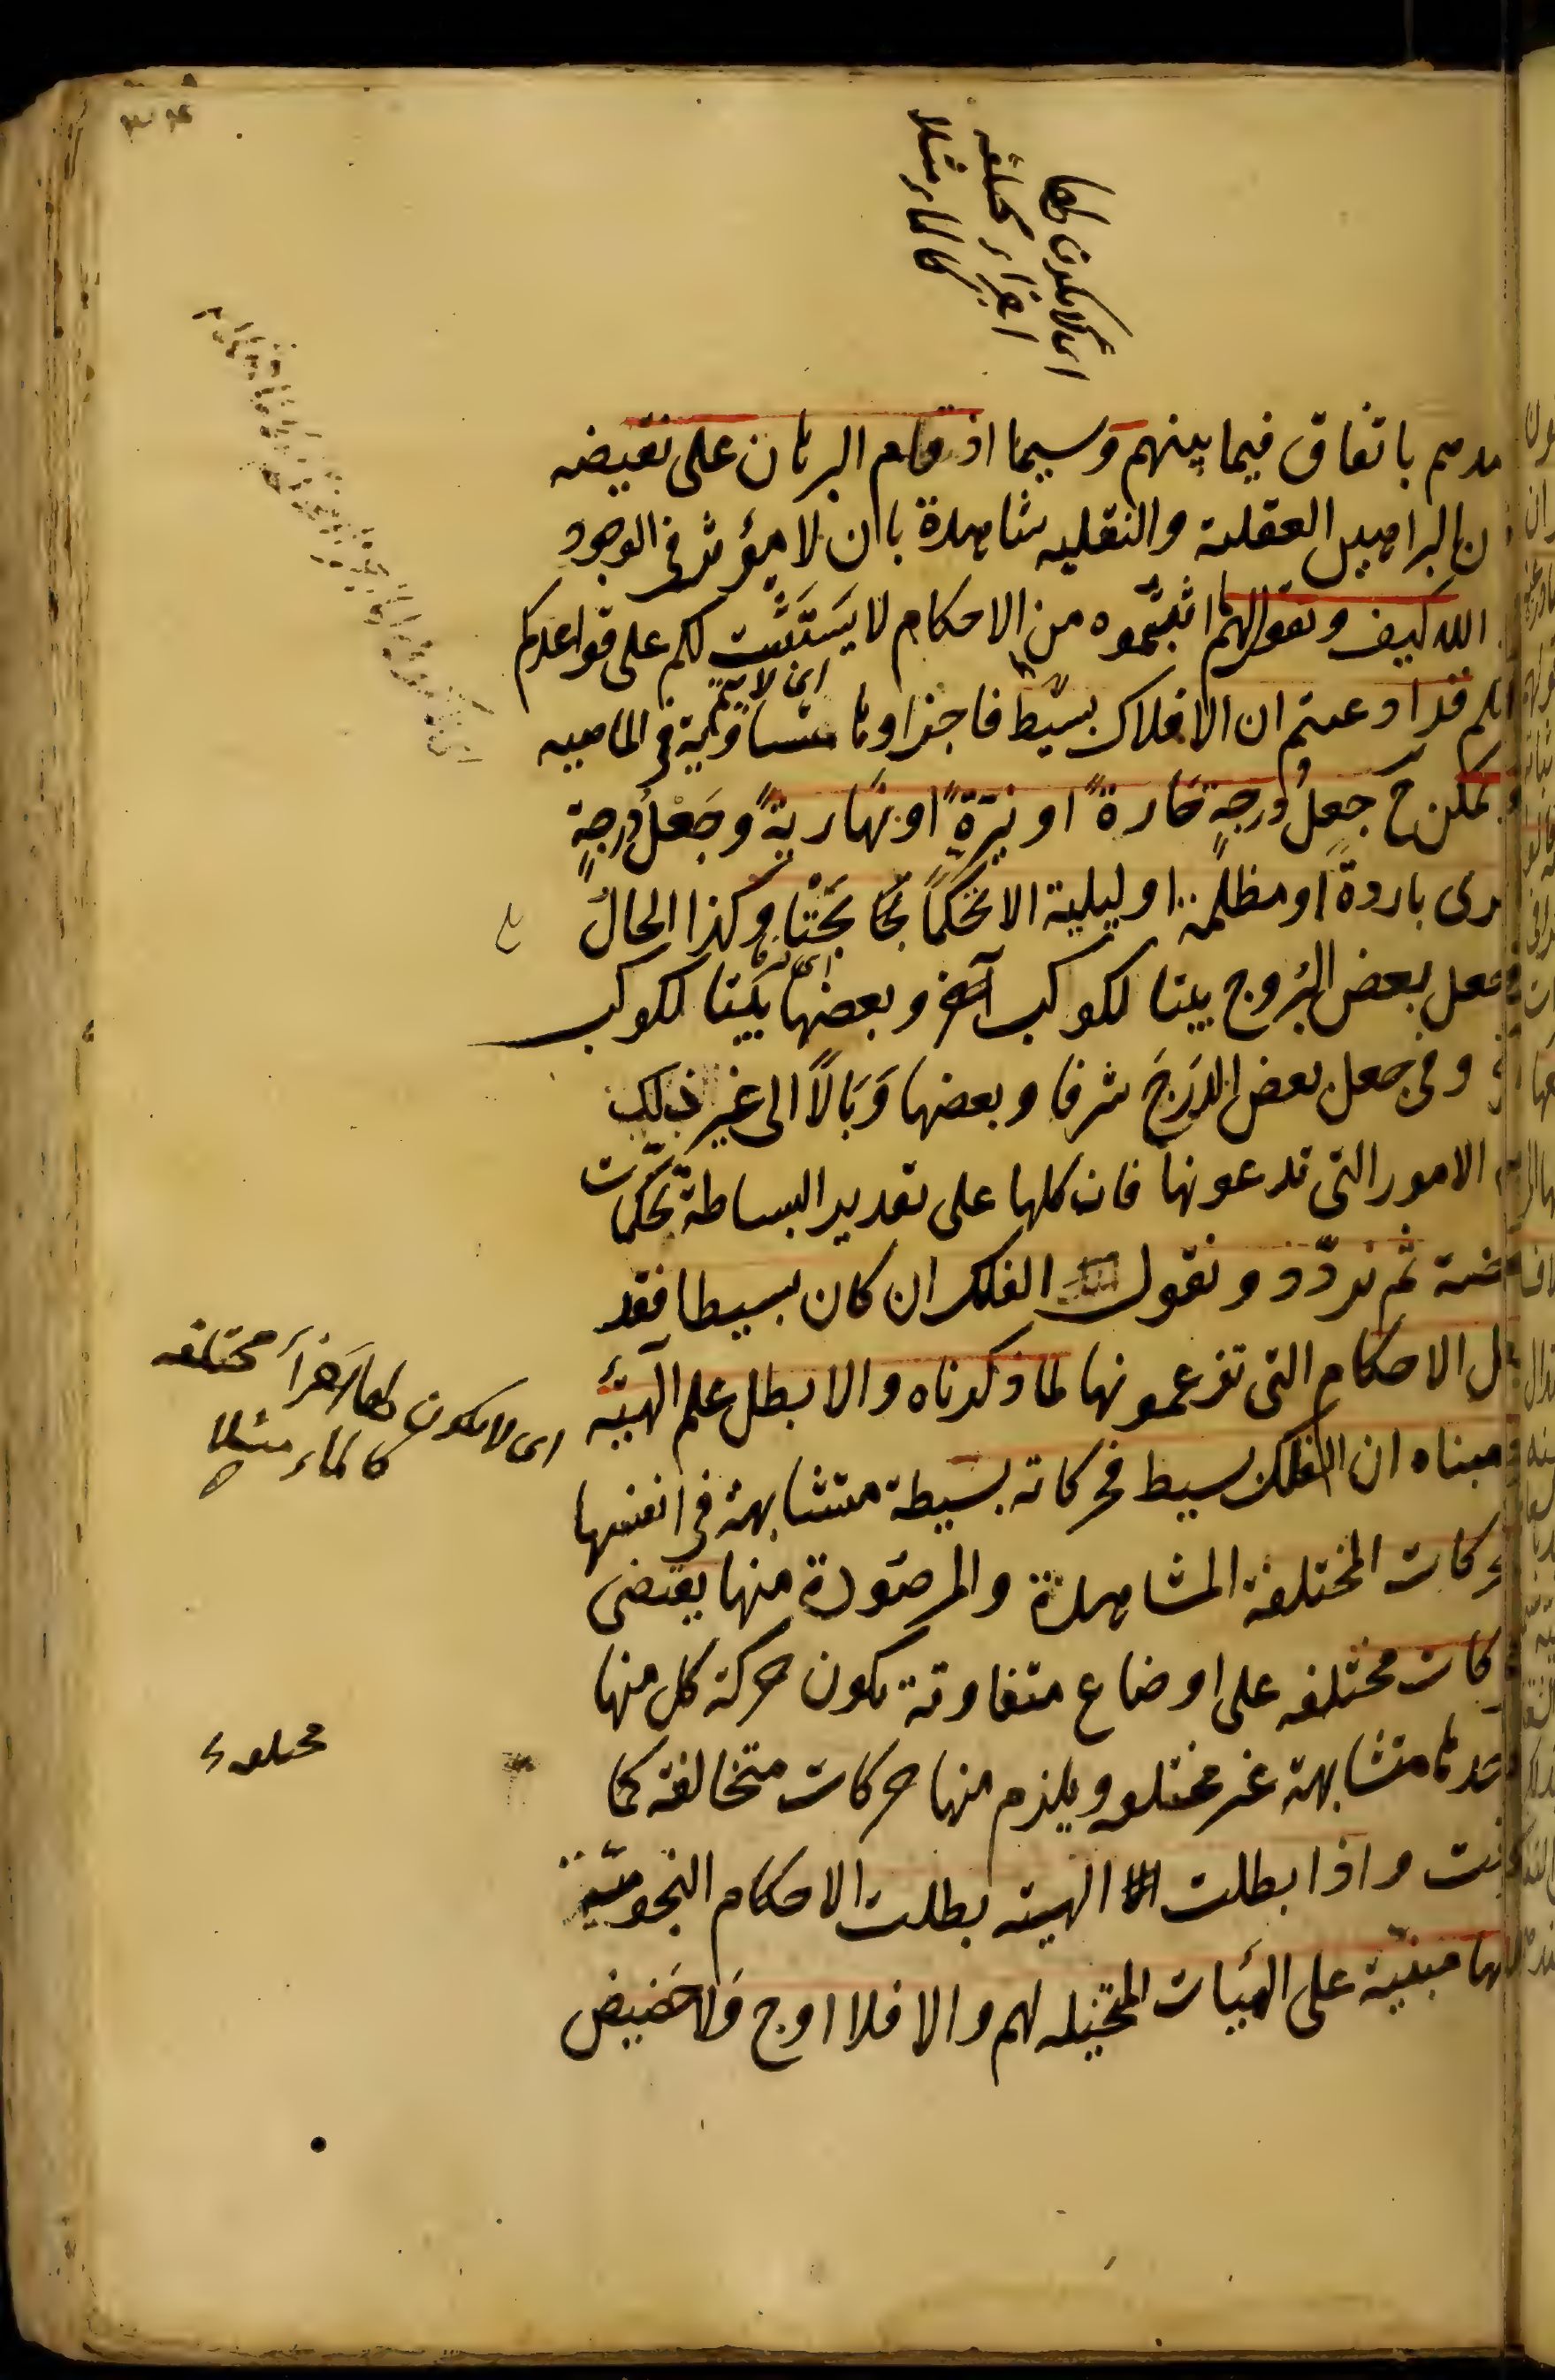 اى لا يكون لها
اجزاء مختلفه
كالماء مثلا
باتفاق فيما بينهم وسيما اذ قام البرهان على نقيضه
البراهين العقلية والنقليه شاهدة بان لا مؤثر فى الوجود
الله كيف ونقول لهم ما اثبتموه من الاحكام لا يستتب لكم على قواعدكم
اى لا يتم
قد ادعيتم ان الافلاك بسيط فاجزاوها متساوية فى الماهيه
يمكن ح جعل درجة حارة او نيرة او نهارية وجعل درجة
باردة او مظلمة او ليلية الا تحكما بحتا وكذا الحال
جعل بعض البروج بيتا لكوكب آخر وبعضها بيتا لكوكب
وفى جعل بعض الدرج شرفا وبعضها وبالا الى غير ذلك
الامور التى تدعونها فان كلها على تقدير البساطة تحكمات
ثم نردد ونقول الفلك ان كان بسيطا فقد
الاحكام التى تزعمونها لما ذكرناه والا بطل علم الهيئة
اى لا يكون لها اجزأ مختلفه
كالماء مثلا
مبناه ان الفلك بسيط فحركاته بسيطة متشابهة فى انفسها
المختلفة المشاهدة والمرصودة منها يقتضى
مختلفه على اوضاع متفاوتة يكون حركة كل منها
متشابهة غير مختلفه ويلزم منها حركات متخالفة كما
مختلفة
واذا بطلت الهيئة بطلت الاحكام النجومية
مبنية على الهيئات المتخيله لهم والا فلا اوج ولا حضيض